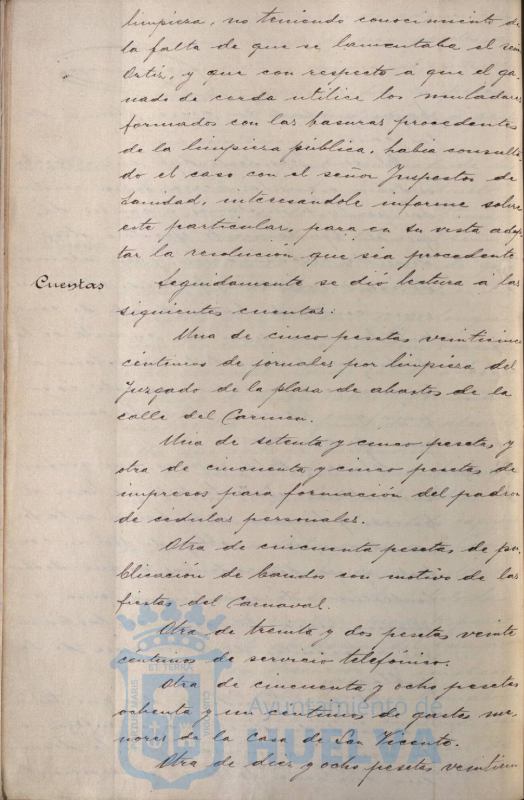 limpieza, no teniendo conocimiento de
la falta de que se lamentaba el señ
Ortiz, y que con respecto á que el ga-
nado de cerda utilice los muladares
formados con las basuras procedentes
de la limpieza pública, habia consulta
do el caso con el señor Inspector de
Sanidad, interesándole informe sobre
este particular, para en su vista adop
tar la resolución que sea procedente
Cuentas
Seguidamente se dió lectura á las
siguientes cuentas:
Una de cinco pesetas veinticinco
céntimos de jornales por limpieza del
Juzgado de la plaza de abastos de la
calle del Carmen.
Una de setenta y cinco pesetas y
otra de cincuenta y cinco pesetas de
impresos para formación del padron
de cédulas personales.
Otra de cincuenta pesetas de pu-
blicación de bandos con motivo de las
fiestas del Carnaval.
Otra de treinta y dos pesetas veinte
céntimos de servicio telefónico.
Otra de cincuenta y ocho pesetas
ochenta y un céntimos de gastos me-
nores de la casa de San Vicente.
Otra de diez y ocho pesetas
PORTUS MARIS
ET TERRÆ
CUSTODIA
Ayuntamiento de
HUELVA